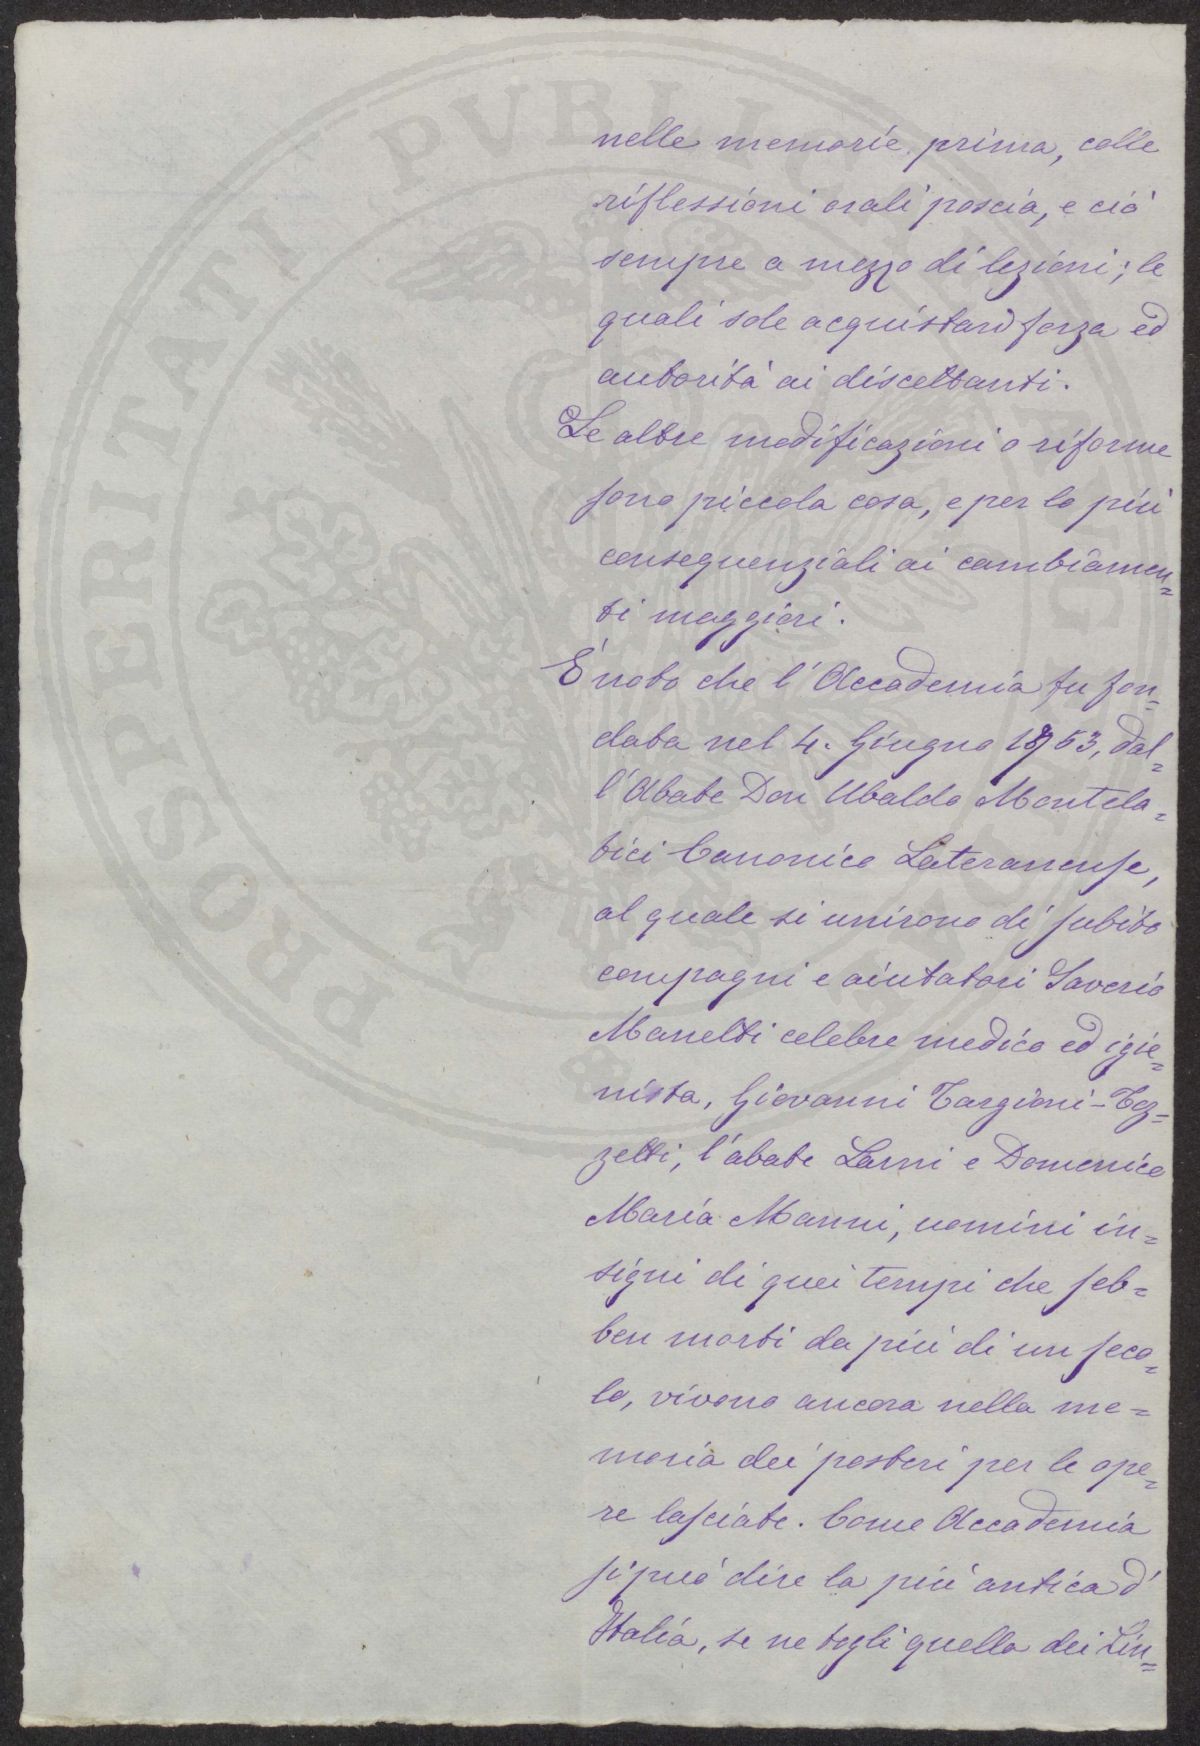 nelle memorie prima, colle
riflessioni orali poscia, e ciò
sempre a mezzo di lezioni; le
quali sole acquistano forza ed
autorità ai discettanti.
Le altre modificazioni o riforme
sono piccola cosa, e per lo più
consequenziali ai cambiamen=
ti maggiori.
É noto che l'Accademia fu fon=
data nel 4. Giugno 1753, dal=
l'Abate Don Ubaldo Montela=
tici Canonico Lateranense,
al quale si unirono di subito
compagni e aiutatori Saverio
Manetti celebre medico ed igie=
nista, Giovanni Targioni-Toz=
zetti, l'abate Lami e Domenico
Maria Manni, uomini in=
signi di quei tempi che seb=
ben morti da più di un seco=
lo, vivono ancora nella me=
moria dei posteri per le ope=
re lasciate. Come Accademia
si può dire la più antica d'
Italia, se ne togli quella dei Lin=
PROSPERITATI PUBLICAE